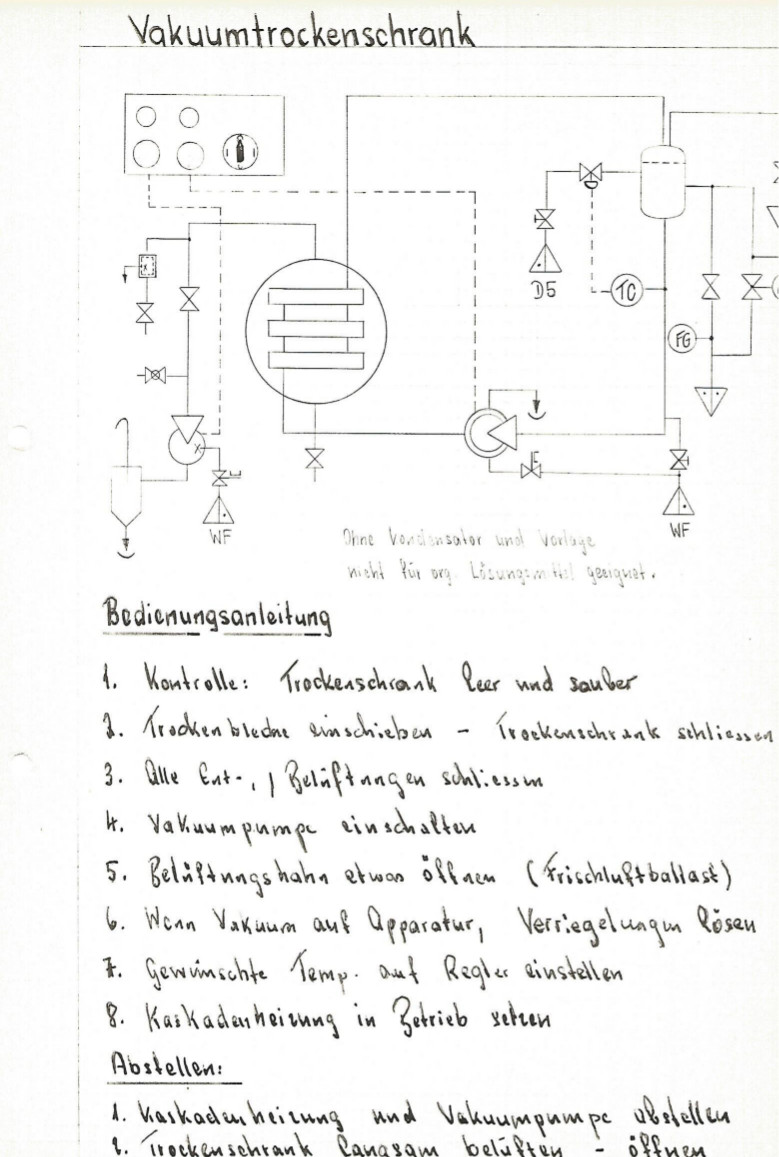 Vakuumtrockenschrank
D5
TC
FG
WF
WF
Ohne Kondensator und Vorlage
nicht für org. Lösungsmittel geeignet.
Bedienungsanleitung
1. Kontrolle: Trockenschrank leer und sauber
2. Trockenbleche einschieben - Trockenschrank schliessen
3. Alle Ent-, / Belüftungen schliessen
4. Vakuumpumpe einschalten
5. Belüftungshahn etwas öffnen (Frischluftballast)
6. Wenn Vakuum auf Apparatur, Verriegelungen lösen
7. Gewünschte Temp. auf Regler einstellen
8. Kaskadenheizung in Betrieb setzen
Abstellen:
1. Kaskadenheizung und Vakuumpumpe abstellen
2. Trockenschrank langsam belüften - öffnen